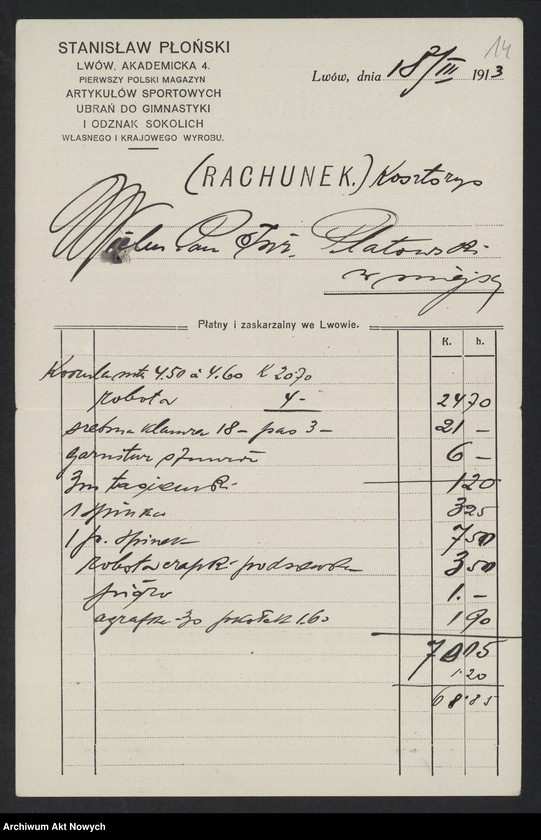 14
STANISŁAW PŁOŃSKI
LWÓW, AKADEMICKA 4.
PIERWSZY POLSKI MAGAZYN
ARTYKUŁÓW SPORTOWYCH
UBRAŃ DO GIMNASTYKI
I ODZNAK SOKOLICH
WŁASNEGO I KRAJOWEGO WYROBU.
Lwów, dnia 18/III 1913
(RACHUNEK.) Kosztorys
Wielm Pan Inż. Platowski
w miejscu
Płatny i zaskarzalny we Lwowie.
K. h.
Koszula mtr 4.50 à 4.60 K 20.70
robota 4- 24 70
srebrna klamra 18- pas 3- 21 -
garnitur sznurów 6 -
3m tasiemki 1 20
1 spinka 3 25
1 p. spinek 7 50
robota czapki podszewka 3 50
pióro 1. -
agrafka 30 1.60 1 90
70 05
1.20
68.85
Archiwum Akt Nowych